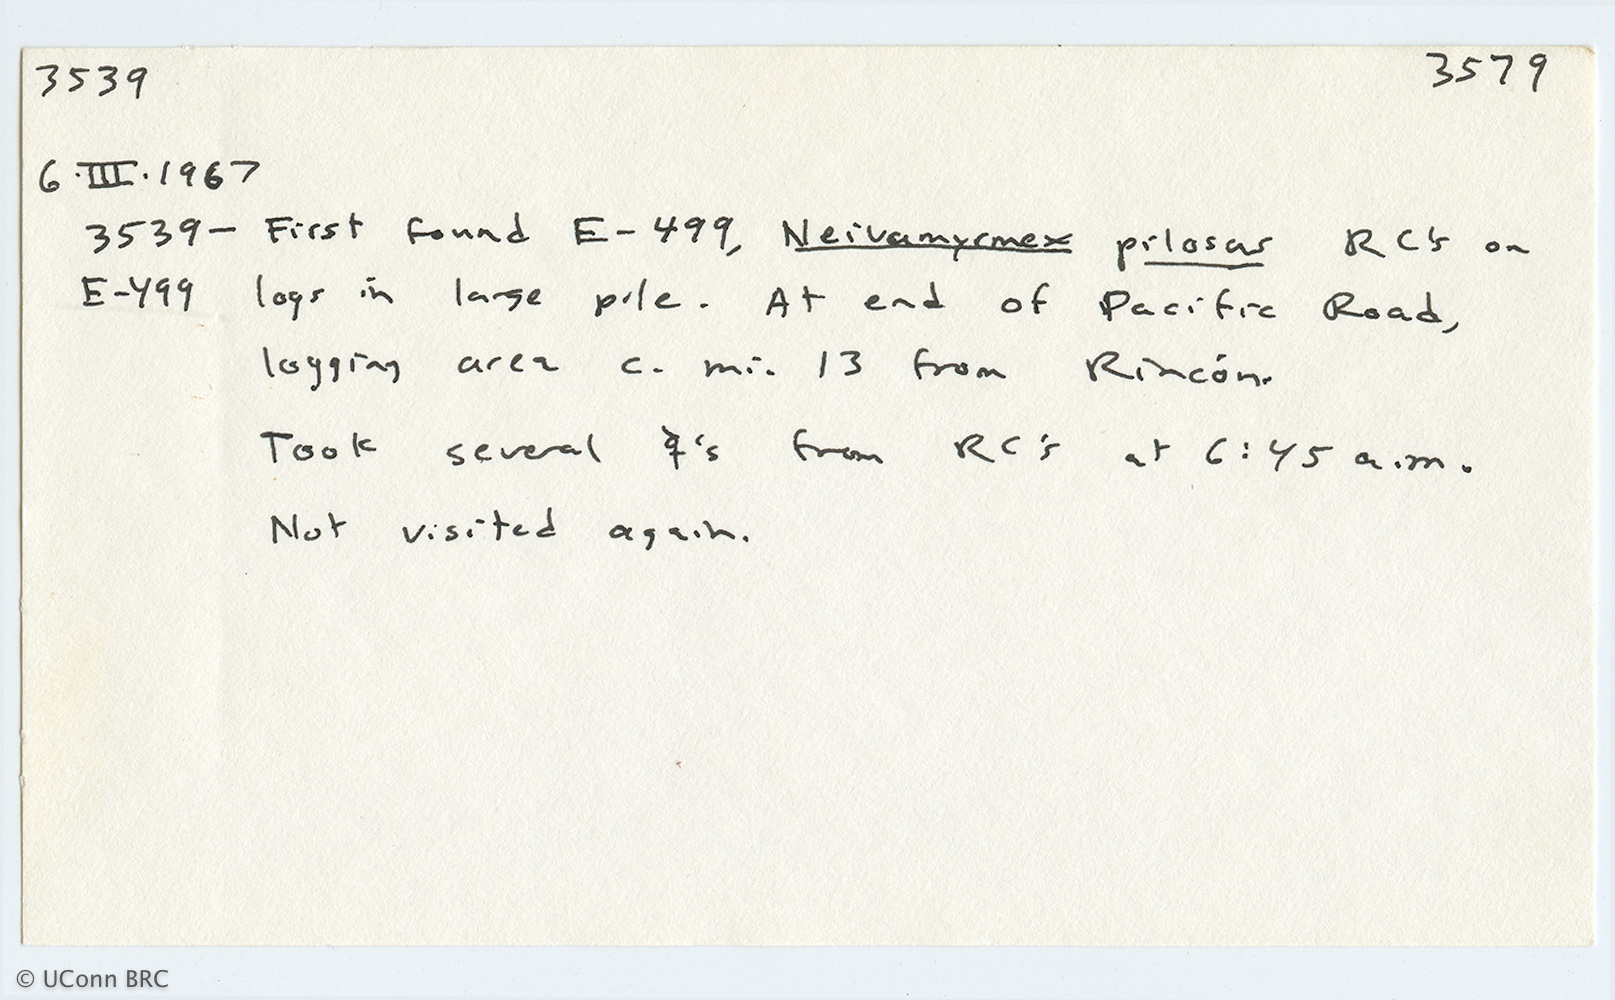 3539 3579
6.III.1967
3539- First found E-499, Neivamyrmex pilosus RC's on
E-499 logs in large pile. At end of Pacific Road,
logging area c. mi. 13 from Rincón.
Took several ☿'s from RC's at 6:45 a.m.
Not visited again.
© UConn BRC